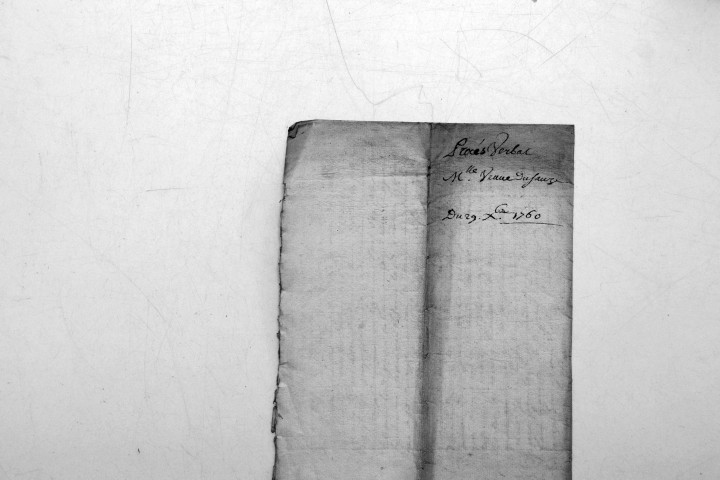 Procés Verbal
M.lle Viaue du Sauze
Du 29. Xbre 1760